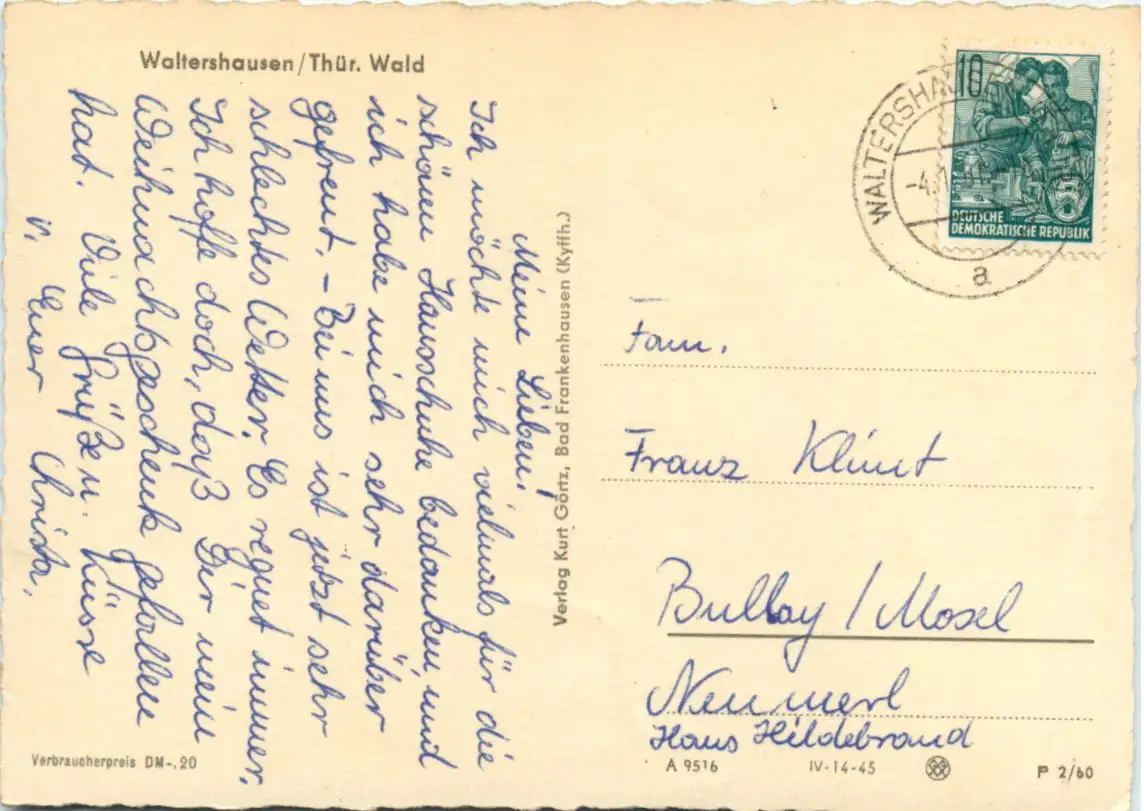 Waltershausen/Thür. Wald
Meine Lieben!
Ich möchte mich vielmals für die
schönen Hausschuhe bedanken, und
ich habe mich sehr darüber
gefreut. – Bei uns ist jetzt sehr
schlechtes Wetter. Es regnet immer.
Ich hoffe doch, daß Dir mein
Weihnachtsgeschenk gefallen
hat. Viele Grüße u. Küsse
v. Eurer Christa.
Verlag Kurt Görtz, Bad Frankenhausen (Kyffh.)
WALTERSHAUSEN
a
10
5
DEUTSCHE
DEMOKRATISCHE REPUBLIK
Fam.
Franz Klint
Bullay / Mosel
Neumerl
Haus Hildebrand
Verbraucherpreis DM-,20
A 9516 IV-14-45 P 2/60